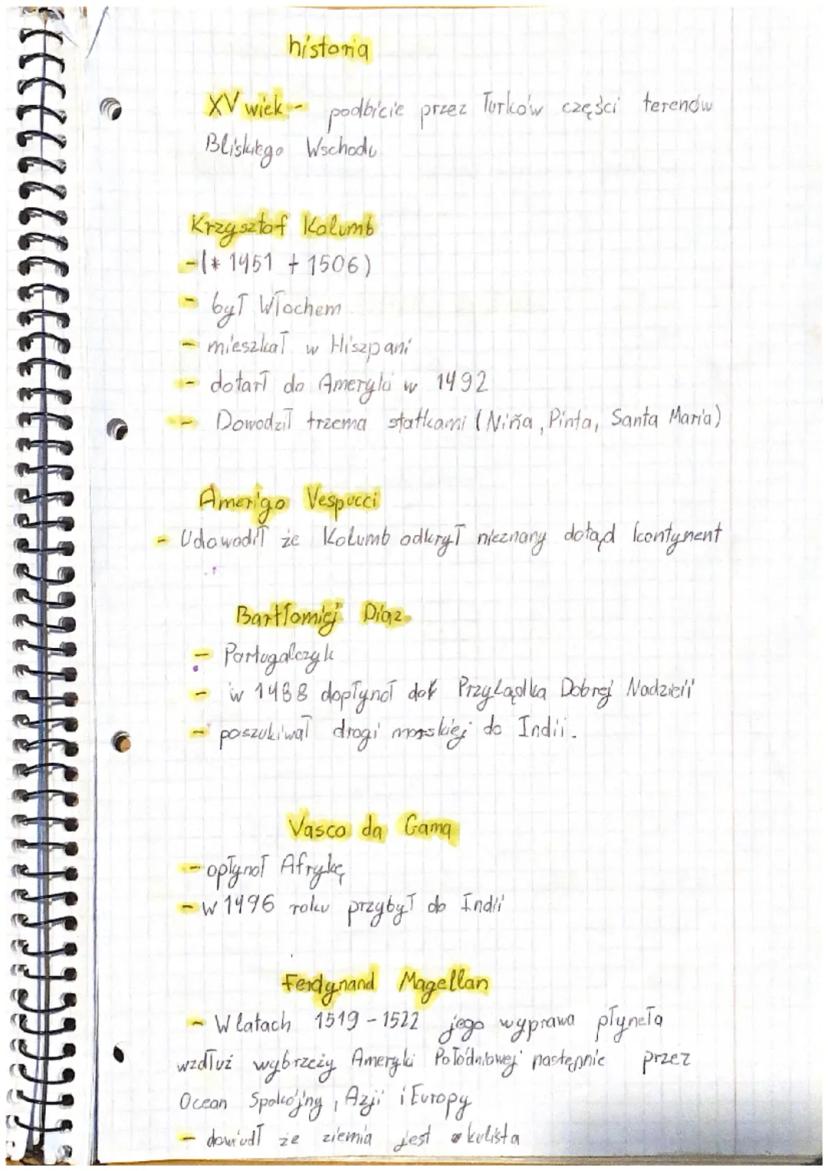 historia
XV wiek - podbicie przez Turków części terenów
Bliskiego Wschodu
Krzysztof Kolumb
- (* 1451 + 1506)
- był Włochem
- mieszkał w Hiszpani
- dotarł do Ameryki w 1492
- Dowodził trzema statkami (Niña, Pinta, Santa Maria)
Amerigo Vespucci
- Udowodił że Kolumb odkrył nieznany dotąd kontynent
Bartłomiej Diaz
- Portugalczyk
- w 1488 dopłynoł do Przylądka Dobrej Nadzieii
- poszukiwał drogi morskiej do Indii.
Vasco da Gama
- opłynoł Afrykę
- w 1496 roku przybył do Indii
Ferdynand Magellan
- W latach 1519 - 1522 jego wyprawa płyneła
wzdłuż wybrzeży Ameryki Południowej następnie przez
Ocean Spokojny, Azji i Europy
- dowiudł że ziemia jest kulista